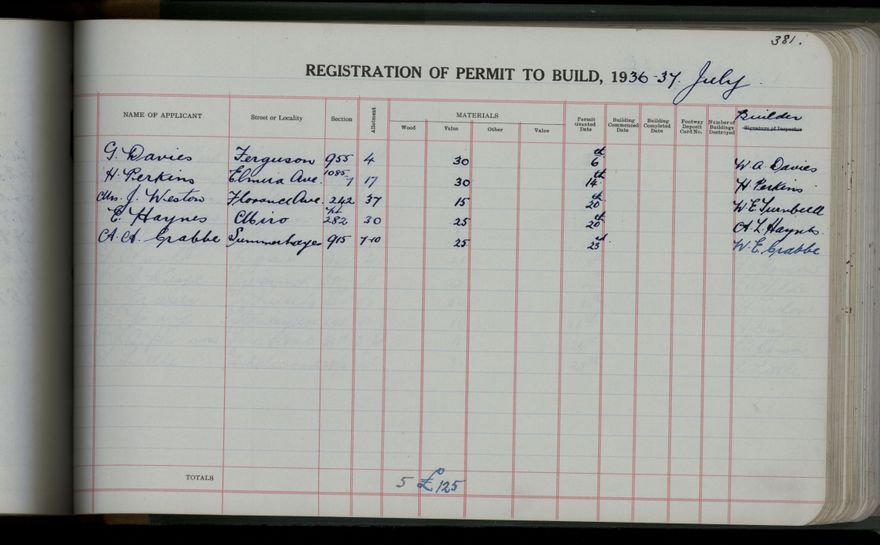 381.
REGISTRATION OF PERMIT TO BUILD, 1936-37. July.
NAME OF APPLICANT Street or Locality Section Allotment MATERIALS Wood Value Other Value Permit Granted Date Building Commenced Date Building Completed Date Footway Deposit Card No. Number of Buildings Destroyed Builder Signature of Inspector
G. Davies Ferguson 955 4 30 6th W. A. Davies
H. Perkins Elmira Ave. 1085-7 17 30 14th H Perkins
Mrs. J. Weston Florence Ave. 242 37 15 20th W. E Turnbull
E. Haynes Miro 282 30 25 20th A. L. Haynes
A. A. Grabbe Summerhayes 915 7-10 25 23rd W. E. Grabbe
TOTALS 5 £125